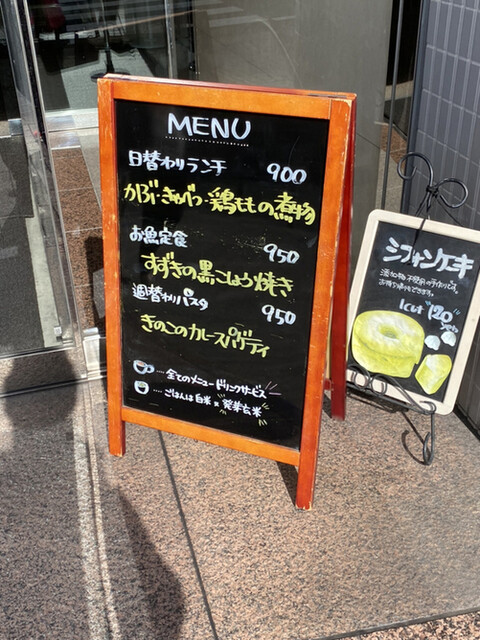 MENU
日替わりランチ 900
かぶ・きゃべつ・鶏ももの煮物
お魚定食 950
すずきの黒こしょう焼き
週替わりパスタ 950
きのこのカレースパゲティ
…… 全てのメニュードリンクサービス
…… ごはんは白米 or 発芽玄米
シフォンケーキ
添加物不使用の手作りです。
お持ち帰りもできます。
1cut 120